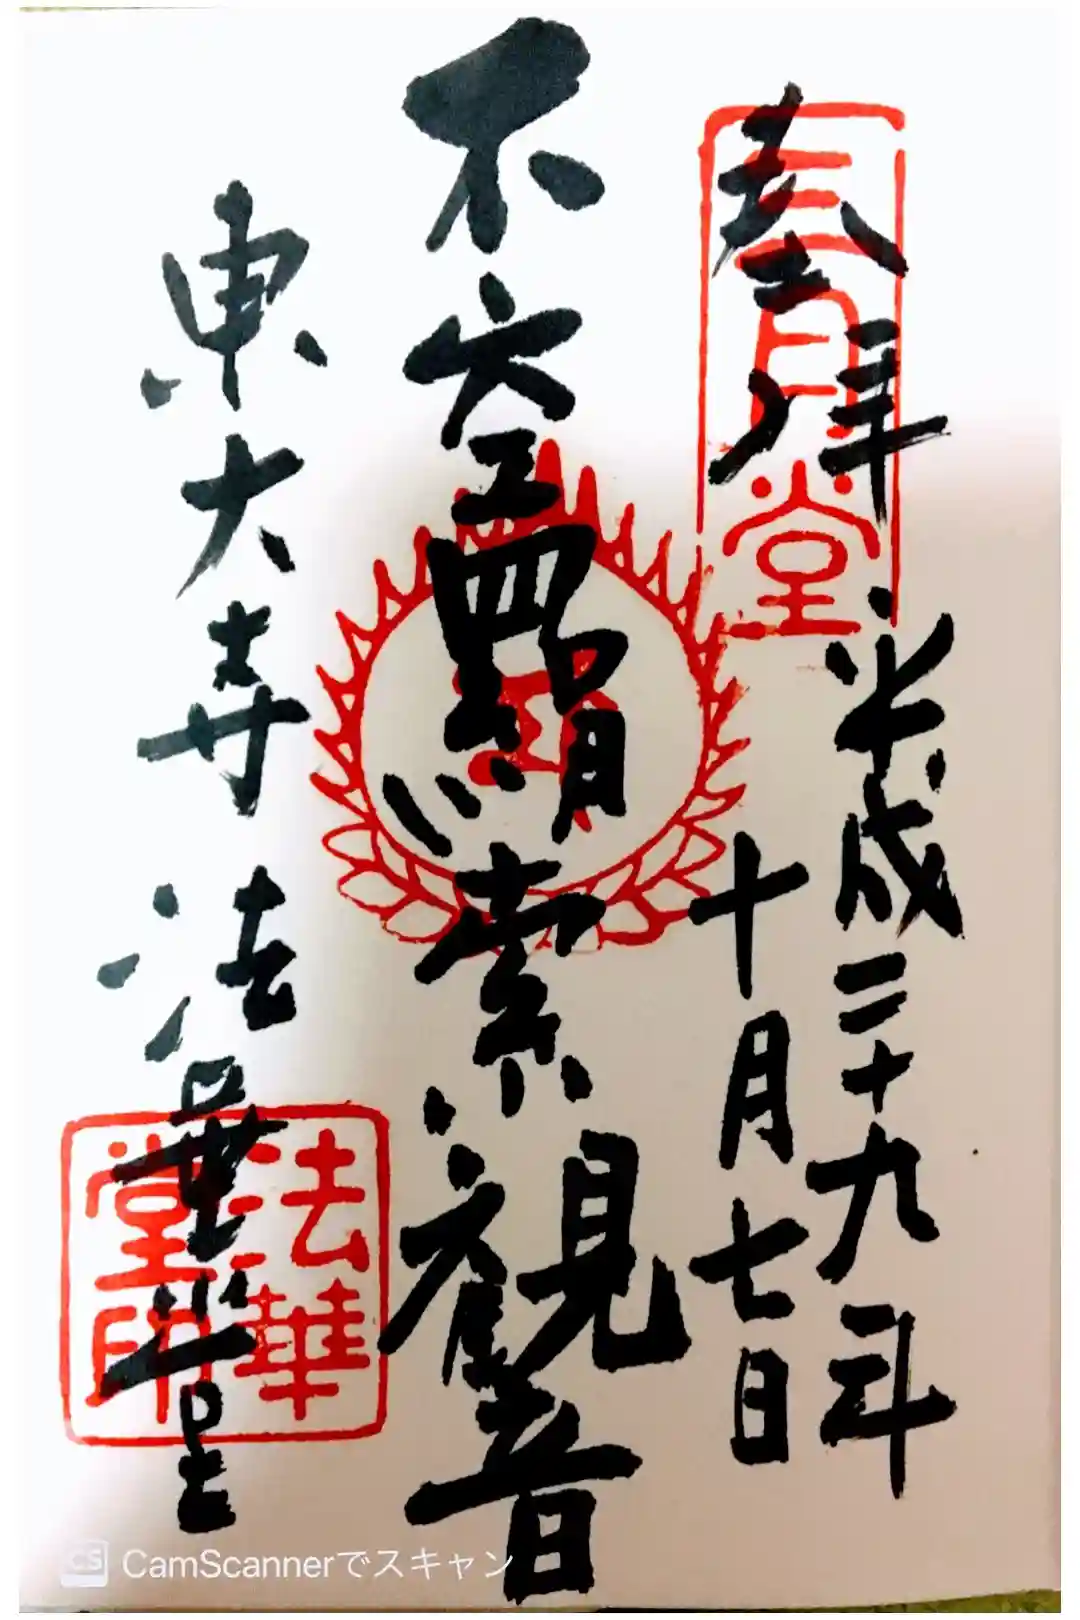 奉拝
三月堂
平成二十九年
十月七日
不空羂索観音
東大寺法華堂
法華堂印
CamScannerでスキャン